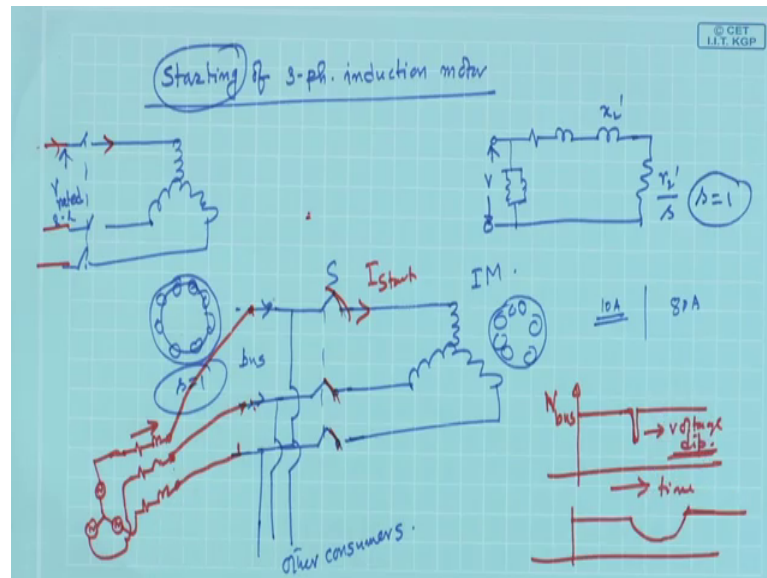 © CET
I.I.T. KGP
Starting of 3-ph. induction motor
x₂'
V
rated
V
r₂'/s
s=1
S
I start
IM.
10A | 80A
s=1
bus
V bus
→ voltage
dip.
→ time
other consumers.